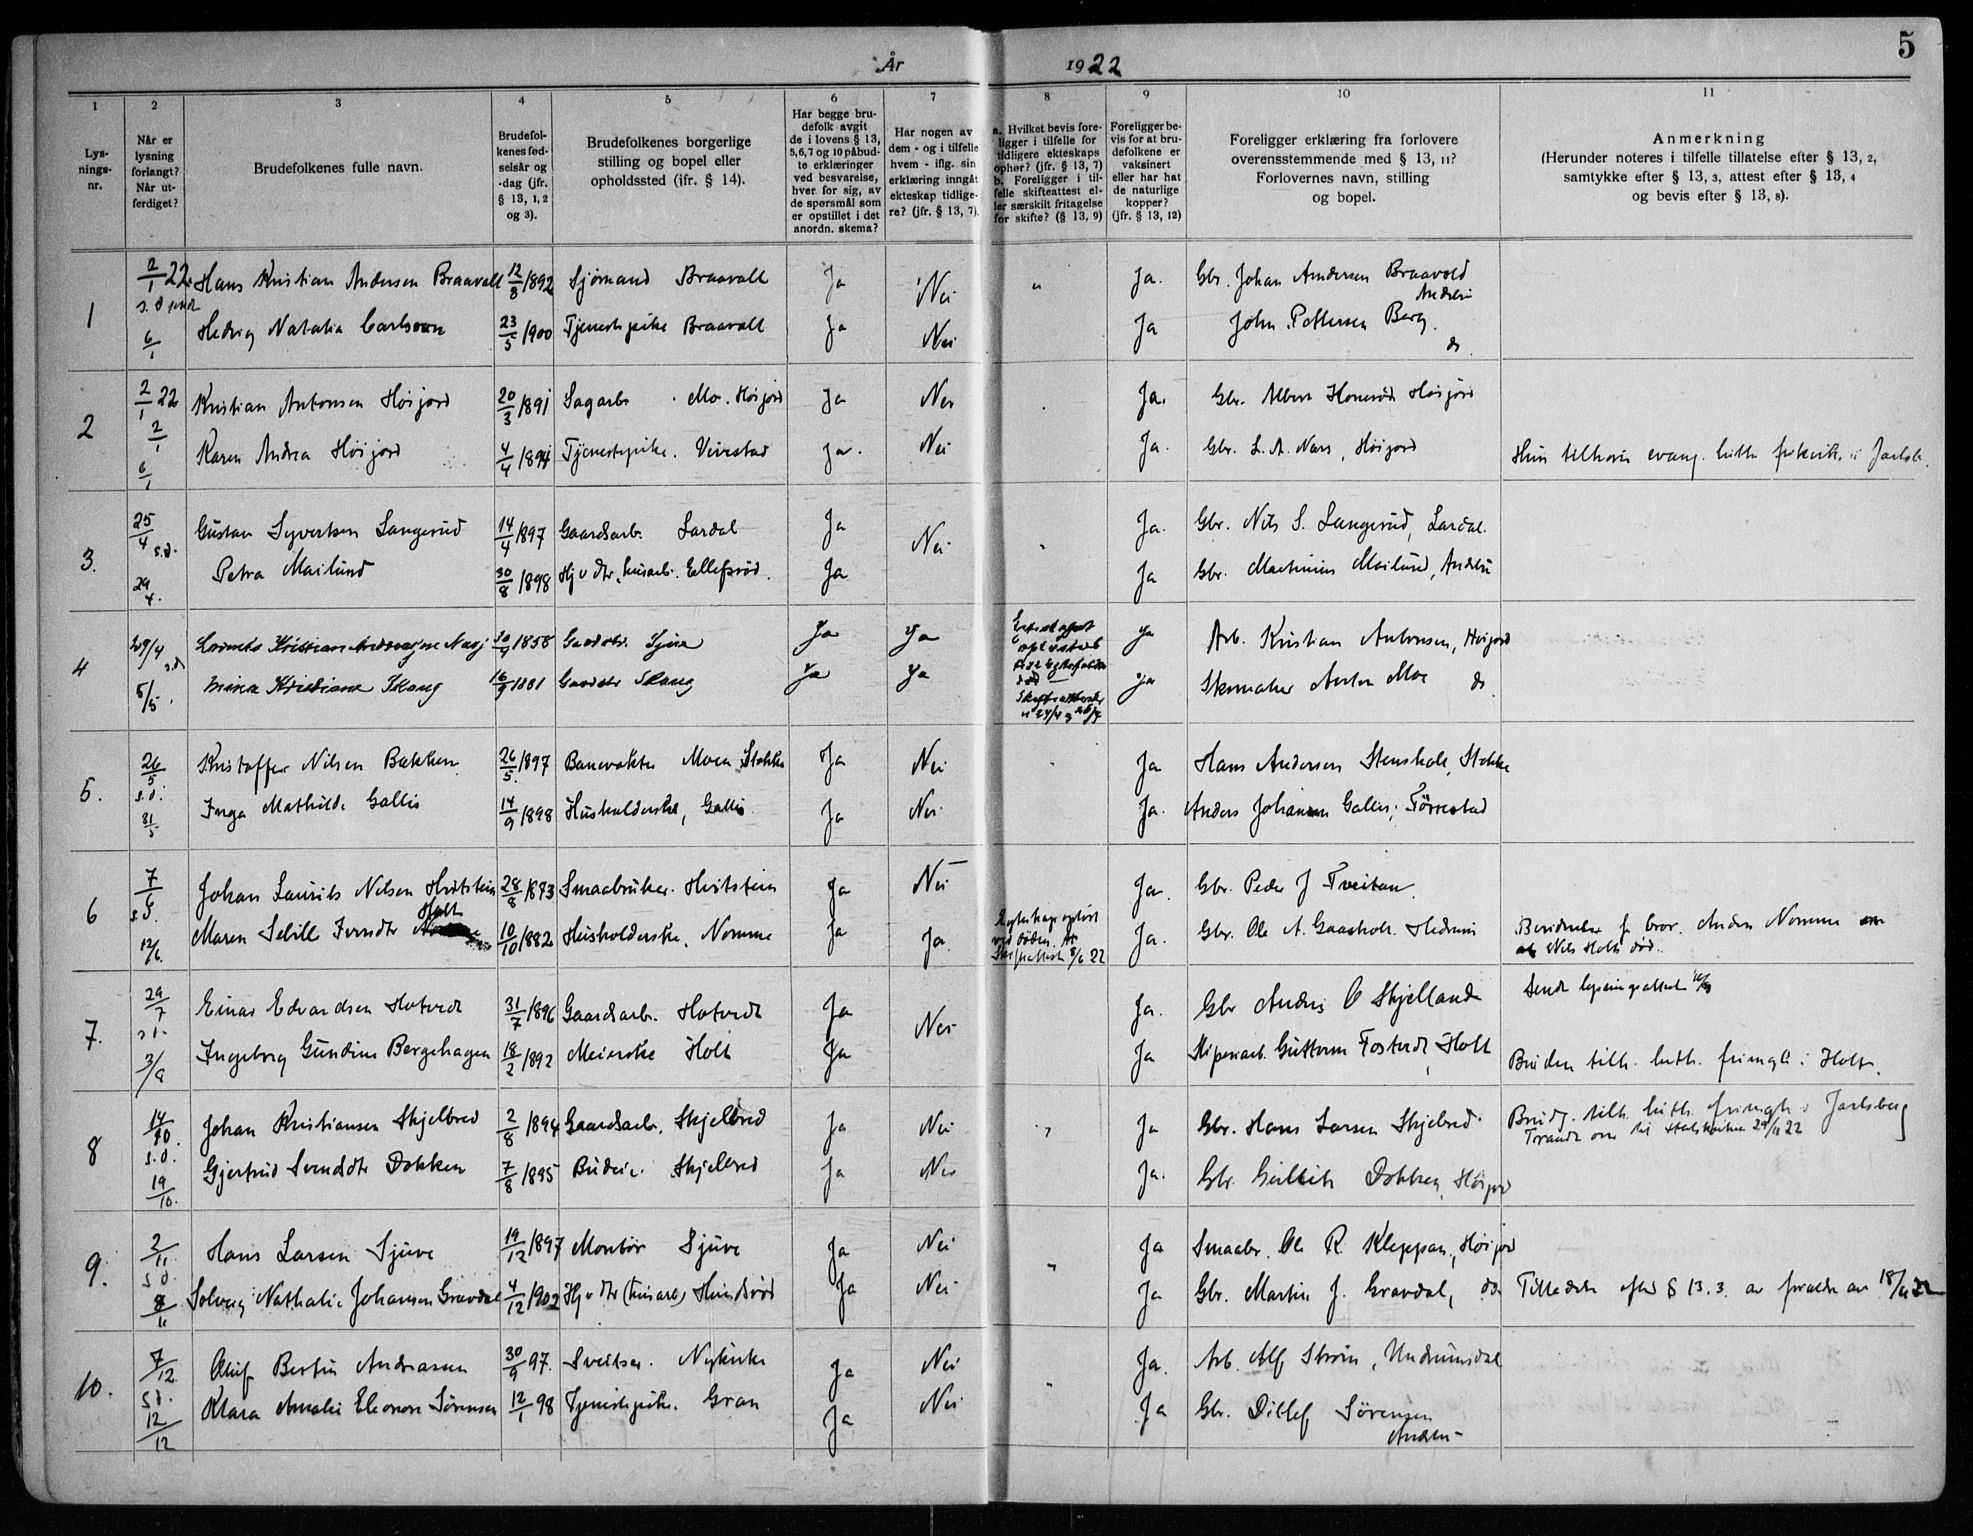 År 1922
5
1 2 3 4 5 6 7 8 9 10 11
Lys-
nings-
nr.
Når er
lysning
forlangt?
Når ut-
ferdiget?
Brudefolkenes fulle navn.
Brudefol-
kenes fød-
selsår og
-dag (jfr.
§ 13, 1, 2
og 3).
Brudefolkenes borgerlige
stilling og bopel eller
opholdssted (ifr. § 14).
Har begge bru-
defolk avgit
de i lovens § 13,
5,6,7 og 10 påbud-
te erklæringer
ved besvarelse,
hver for sig, av
de spørsmål som
er opstillet i det
anordn. skema?
Har nogen av
dem - og i tilfelle
hvem - iflg. sin
erklæring inngåt
ekteskap tidlige-
re? (jfr. § 13, 7).
a. Hvilket bevis fore-
ligger i tilfelle for
tidligere ekteskaps
ophør? (jfr. § 13, 7)
b. Foreligger i til-
felle skifteattest el-
ler særskilt fritagelse
for skifte? (§ 13, 9)
Foreligger be-
vis for at bru-
defolkene er
vaksinert
eller har hat
de naturlige
kopper?
(jfr. § 13, 12)
Foreligger erklæring fra forlovere
overensstemmende med § 13, 11?
Forlovernes navn, stilling
og bopel.
Anmerkning
(Herunder noteres i tilfelle tillatelse efter § 13, 2,
samtykke efter § 13, 3, attest efter § 13, 4
og bevis efter § 13, 8).
1 2/1 22 Hans Kristian Andersen Braavoll 12/8 1892 Sjømand Braavoll Ja Nei " Ja. Gbr. Johan Andersen Braavold
Andebu
6/1 Hedvig Natalia Carlsson 23/5 1900 Tjenestepike Braavoll Ja Nei Ja John Pettersen Berg.
do.
2 2/1 22 Kristian Antonsen Høijord 20/3 1891 Sagarb. Mo. Høijord Ja Nei Ja. Gbr. Albert Høijord
2/1
6/1 Karen Andrea Høijord 4/4 1894 Tjenestepike. Vivestad Ja. Nei Ja. Gbr. L. A. Næss, Høijord Hun tilhører evang. luth. frikirke i Jarlsb.
3. 25/4 s.d. Gustav Syvertsen Langerud 14/4 1897 Gaardsarb. Lardal Ja Nei Ja. Gbr. Nils S. Langerud, Lardal.
29/4. Petra Mailund 30/8 1898 Hj v dtr, husarb. Ellefsrød. Ja Ja Gbr. Mathinius Mailund, Andebu
4 29/4 s.d. Kristian 1858 Ja Ja Ja Arb. Kristian Antonsen, Høijord
5/5. Kristiane Skaug 16/9 1881 Skaug Ja Ja Ja Skomaker Anton Moe do
5. 26/5 s.d. Kristoffer Nilsen Bakken 26/5. 1897 Banevokter Moen, Stokke Ja Nei Ja Hans Andersen Stenshole, Stokke
31/5 Inga Mathilde Gallis 14/9 1898 Husholderske, Gallis Ja Nei Ja. Anders Johansen Gallis, Torrestad
6 7/6 s.d. Johan Laurits Nilsen Hvitstein 28/8 1883 Smaabruker. Hvitstein Ja Nei Ja. Gbr. Peder J Tveitan.
Holt
12/6. Maren Sebille Iversdtr 10/10 1882 Husholderske. Nomme Ja Ja. Ekteskap ophørt
ved døden.
Skifteattest 8/6 22 Ja. Gbr. Ole A. Gaasholt. Hedrum Bevidnelse f. bror. Anders Nomme om
at Nils Holt død.
7. 29/7 s.d. Einar Edvardsen Hotvedt 31/7 1896 Gaardsarb. Hotvedt Ja Nei Ja. Gbr Anders O Skjelland Sendt lysningsattest
3/8 Ingeborg Gundine Bergehagen 18/2 1892 Meierske Holt Ja Ja Guttorm Fosterud, Holt Bruden tilh. luth. frimgh. i Holt.
8 14/10. s.d. Johan Kristiansen Skjelbred 2/8 1894 Gaardsarb. Skjelbred Ja Nei Ja Gbr. Hans Larsen Skjelbred. Brudg. tilh. luth. frimgh. i Jarlsberg
Traadt over til Statskirken 29/11 22
19/10. Gjertrud Svendsdtr Dokken 7/8 1895 Budeie. Skjelbred Ja Nei Ja. Gbr. Gullik Dokken, Høijord
9. 2/11 s.d. Hans Larsen Sjuve 19/12 1897 Montør Sjuve Ja Nei " Ja Smaabr. Ole R. Kleppan, Høijord
8/11 Solveig Nathalie Johansen Gravdal 4/12 1902 Hj v dtr (husarb) Hundsrød Ja Nei Ja Gbr. Martin J. Gravdal, do Tilladelse efter § 13.3. av foreldre av 18/ 22
10. 7/12 s.d. Oluf Bertin Andreassen 30/9 97. Sveitser. Nykirke Ja Nei " Ja. Arb. Alf Strøm, Undrumsdal
12/12 Klara Amalie Eleonore Sørensen 12/1 98 Tjenestepike. Gran Ja Nei Ja Gbr. Ditlef Sørensen
Andebu